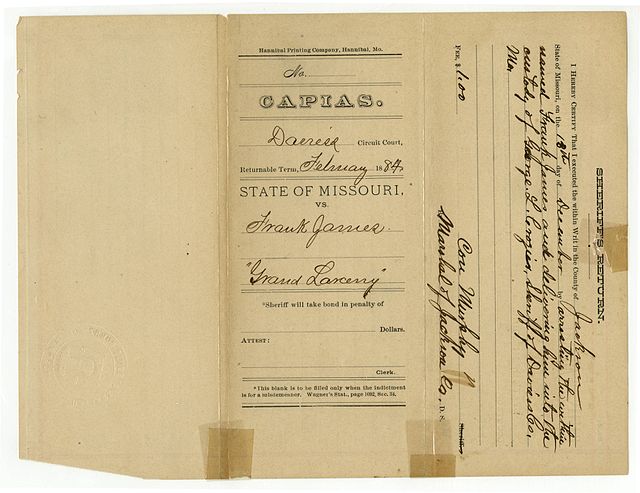 Hannibal Printing Company, Hannibal, Mo.
No.
CAPIAS.
Daviess Circuit Court,
Returnable Term, February 1884
STATE OF MISSOURI,
VS.
Frank James.
"Grand Larceny"
*Sheriff will take bond in penalty of
Dollars.
ATTEST:
Clerk.
*This blank is to be filled only when the indictment
is for a misdemeanor. Wagner's Stat., page 1092, Sec. 24.
SHERIFF'S RETURN.
I HEREBY CERTIFY That I executed the within Writ in the County of Jackson
State of Missouri, on the 13th day of December by arresting the within
named Frank James and delivering him into the
custody of George L. Crozier, Sheriff of Daviess Co,
Mo.
FEE, $ 1.00
Con Murphy
Sheriff
Marshal of Jackson Co. D. S.